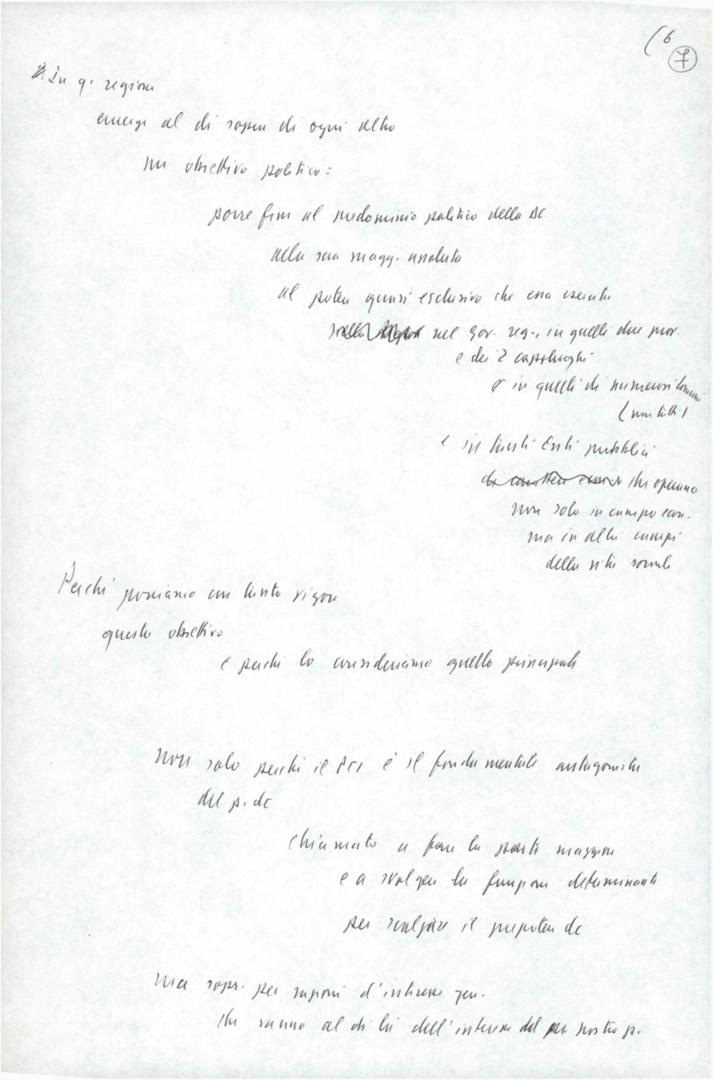 (6
7
In q. regione
emerge al di sopra di ogni altro
un obiettivo politico:
porre fine al predominio politico della DC
alla sua magg. assoluta
al potere quasi esclusivo che essa esercita
nel gov. reg., in quelli due prov.
e dei 2 capoluoghi
e in quelli di numerosi comuni
e in tanti Enti pubblici
che operano
non solo in campo econ.
ma in altri campi
della vita sociale
Perché poniamo con tanto vigore
questo obiettivo
e perché lo consideriamo quello principale
Non solo perché il PCI è il fondamentale antagonista
del p. dc
chiamato a fare la parte maggiore
e a svolgere la funzione determinante
per scalzare il prepotere dc
ma sopr. per ragioni d'interesse gen.
che vanno al di là dell'interesse del nostro p.